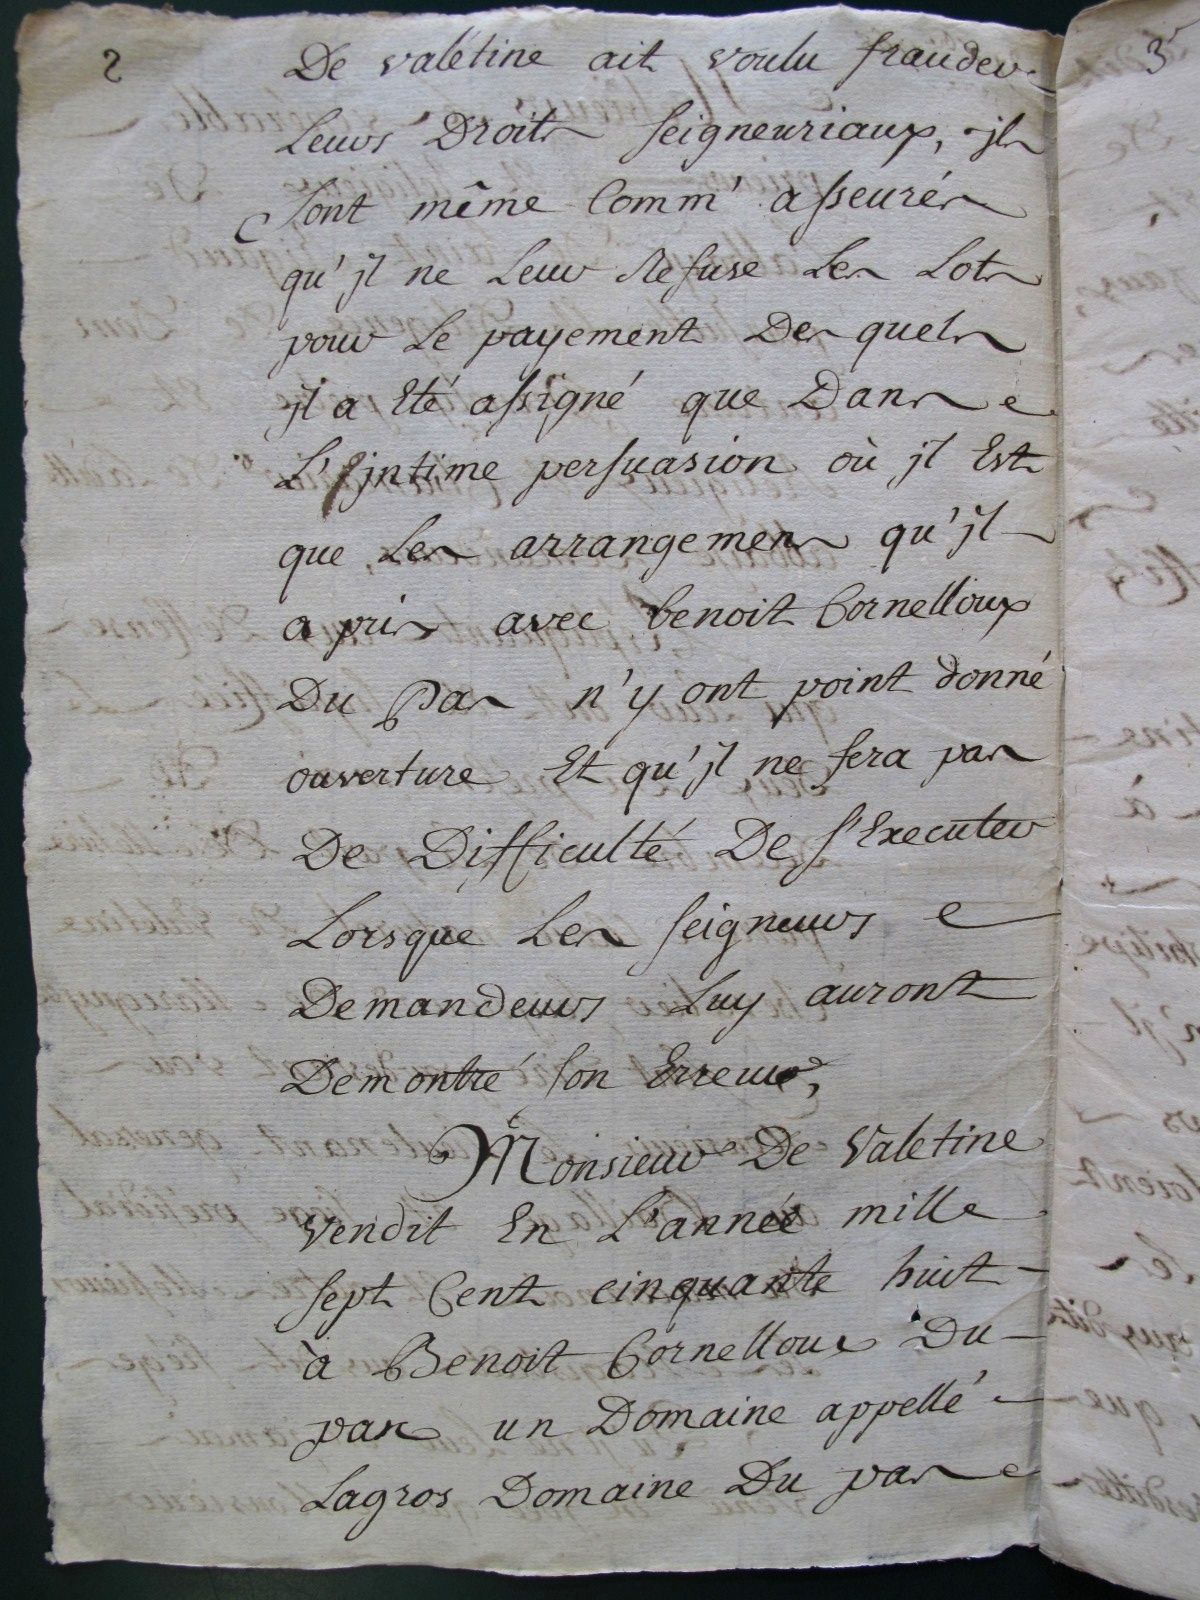 2
De valétine ait voulu frauder
Leurs Droits seigneuriaux, jls
sont même Comm' asseurés
qu'jl ne Leur Refuse Les Lots
pour Le payement Desquels
jl a Eté assigné que Dans
L'jntime persuasion où jl Est
que Les arrangemens qu'jl
a pris avec benoit Cornelloux
Du Pas n'y ont point donné
ouverture Et qu'jl ne fera pas
De Difficulté De s'Executer
Lorsque Les seigneurs
Demandeurs Luy auront
Demontré son Erreur,
Monsieur De Valetine
vendit En L'année mille
sept Cent cinquante huit
à Benoit Cornelloux Du
pas un Domaine appellé
Lagros Domaine Du pas
3